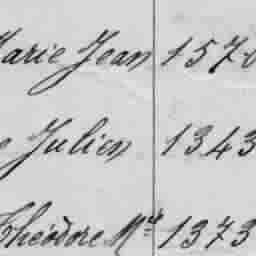 Marie Jean 157
Julien 1343
Théodore Mie 1373